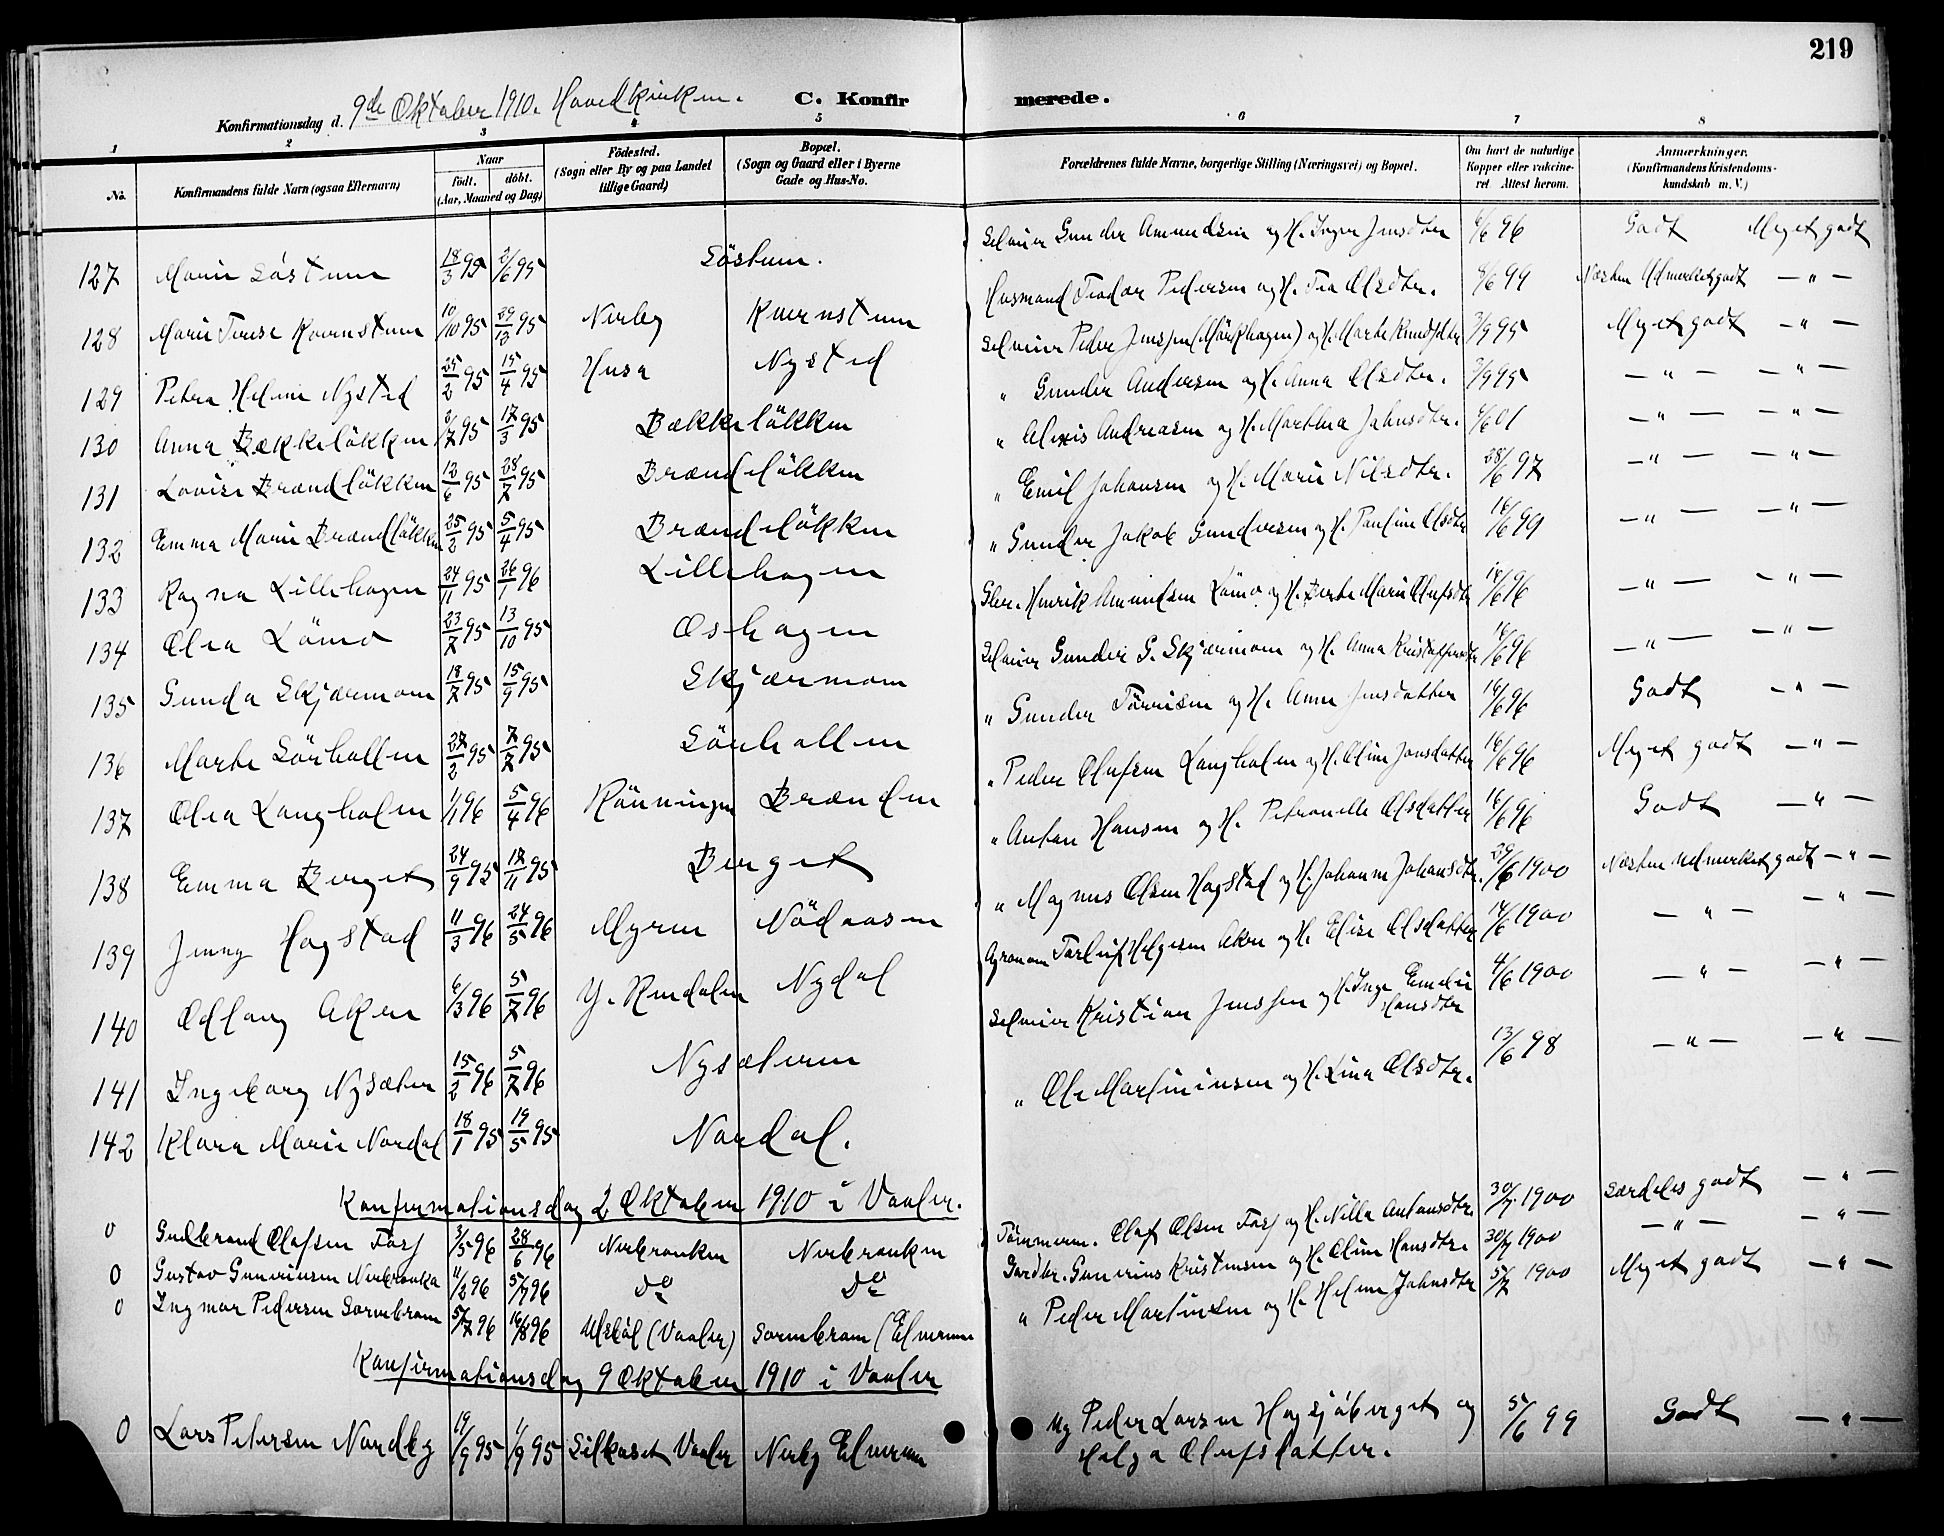 219
Konfirmationsdag d. 9de Oktober 1910. Hovedkirken. C. Konfirmerede.
1 2 3 4 5 6 7 8
No. Konfirmandens fulde Navn (ogsaa Efternavn) Naar födt. döbt. (Aar, Maaned og Dag) Födested. (Sogn eller By og paa Landet tillige Gaard) Bopæl. (Sogn og Gaard eller i Byerne Gade og Hus-No. Forældrenes fulde Navne, borgerlige Stilling (Næringsvei) og Bopæl. Om havt de naturlige Kopper eller vakcineret. Attest herom. Anmærkninger. (Konfirmandens Kristendomskundskab m. V.)
127 Marie Löstuen 18/3 95 2/6 95 Löstuen. Selveier Gunder Amundsen og H. Inger Jensdtr 6/6 96 Godt Meget godt
128 Marie Terese Kvernstuen 10/10 95 29/12 95 Nerby Kvernstuen Husmand Teodor Pedersen og H. Tea Olsdtr. 8/6 99 Næsten Udmerket godt — " —
129 Petra Helene Nysted 25/2 95 15/4 95 Husa Nysted Selveier Peder Jenssen (Mörkhagen) og H. Marte Knudsdtr 3/9 95 Meget godt — " —
130 Anna Bækkelökken 2/7 95 17/3 95 Bækkelökken " Gunder Andersen og H. Anna Olsdtr. 3/9 95 — " — — " —
131 Lovise Brændlökken 12/6 95 28/7 95 Brændlökken " Alexis Andreasen og H. Marthea Johnsdtr. 6/6 01 — " — — " —
132 Emma Marie Brændlökken 25/2 95 5/4 95 Brændlökken " Emil Johansen og H. Marie Nilsdtr. 28/6 97 — " — — " —
133 Ragna Lillehagen 24/11 95 26/1 96 Lillehagen " Gunder Jakob Gundersen og H. Pauline Olsdtr 16/6 99 — " — — " —
134 Olea Lömo 23/7 95 13/10 95 Oshagen Gbr. Henrik Amundsen Lömo og H. Berte Marie Olufsdtr 16/6 96 — " — — " —
135 Gunda Skjærmoen 18/7 95 15/9 95 Skjærmoen Selveier Gunder G. Skjærmoen og H. Anna Kristoffersdtr 16/6 96 — " — — " —
136 Marte Sörhallen 27/2 95 7/7 95 Sörhallen " Gunder Törrisen og H. Anne Jensdatter 16/6 96 Godt — " —
137 Olea Langholen 1/1 96 5/4 96 Rönningen Brænden " Peder Olufsen Langholen og H. Oline Jonsdatter 16/6 96 Meget godt — " —
138 Emma Berget 24/9 95 17/11 95 Berget " Anton Hansen og H. Petronelle Olsdatter 16/6 96 Godt — " —
139 Jenny Hagstad 11/3 96 24/5 96 Myren Nödaasen " Magnus Olsen Hagstad og H. Johanne Johansdtr. 29/6 1900 Næsten udmerket godt — " —
140 Odlaug Aken 6/3 96 5/7 96 Y. Rendalen Nydal Agronom Torleif Helgesen Aken og H. Elise Olsdatter 14/6 1900 — " — — " —
141 Ingeborg Nysæter 15/2 96 5/7 96 Nysæteren Selveier Kristian Jenssen og H. Inga Emelie Hansdtr 4/6 1900 — " — — " —
142 Klara Marie Nordal 18/1 95 19/5 95 Nordal. " Ole Martiniusen og H. Lina Olsdtr. 13/6 98 — " — — " —
Konfirmationsdag 2 Oktober 1910 i Vaaler.
0 Gulbrand Olafsen Torj 3/5 96 28/6 96 Nerbronken Nerbronken Tömmerm. Olaf Olsen Torj og H. Nilla Antonsdtr. 30/7 1900 Særdeles godt — " —
0 Gustav Gunerinsen Nerbronka 11/2 96 5/7 96 do do Gardbr. Gunerius Kristensen og H. Oline Hansdtr. 30/7 1900 — " — — " —
0 Ingmar Pedersen Sormbroen 5/7 96 16/8 96 (Vaaler) Sormbroen (Elverum " Peder Martinsen og H. Helene Johnsdtr 5/7 1900 Meget godt — " —
Konfirmationsdag 9 Oktober 1910 i Vaaler
0 Lars Petersen Nordby 19/9 95 1/9 95 Silkaset Vaaler Nerby Elverum Ug Peder Larsen Hagsjöberget og
Helga Olufsdatter. 5/6 99 Godt — " —